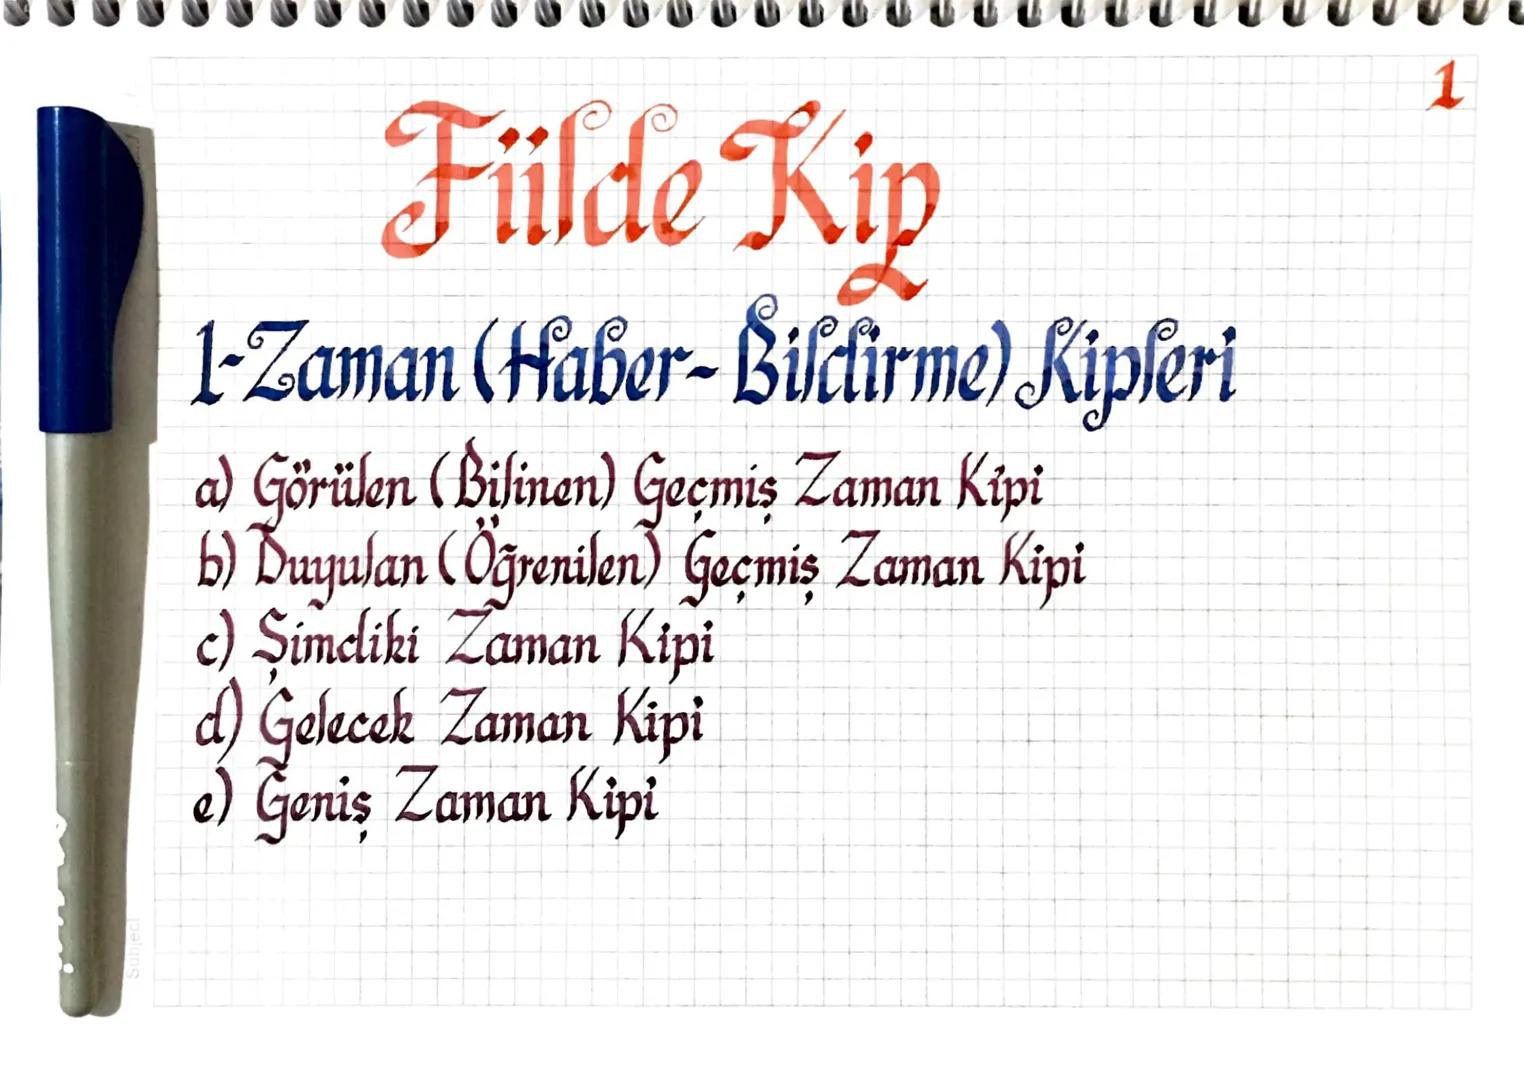 1
Fiilde Kip
1-Zaman (Haber-Bildirme) Kipleri
a) Görülen (Bilinen) Geçmiş Zaman Kipi
b) Duyulan (Öğrenilen) Geçmiş Zaman Kipi
c) Şimdiki Zaman Kipi
d) Gelecek Zaman Kipi
e) Geniş Zaman Kipi
Subject